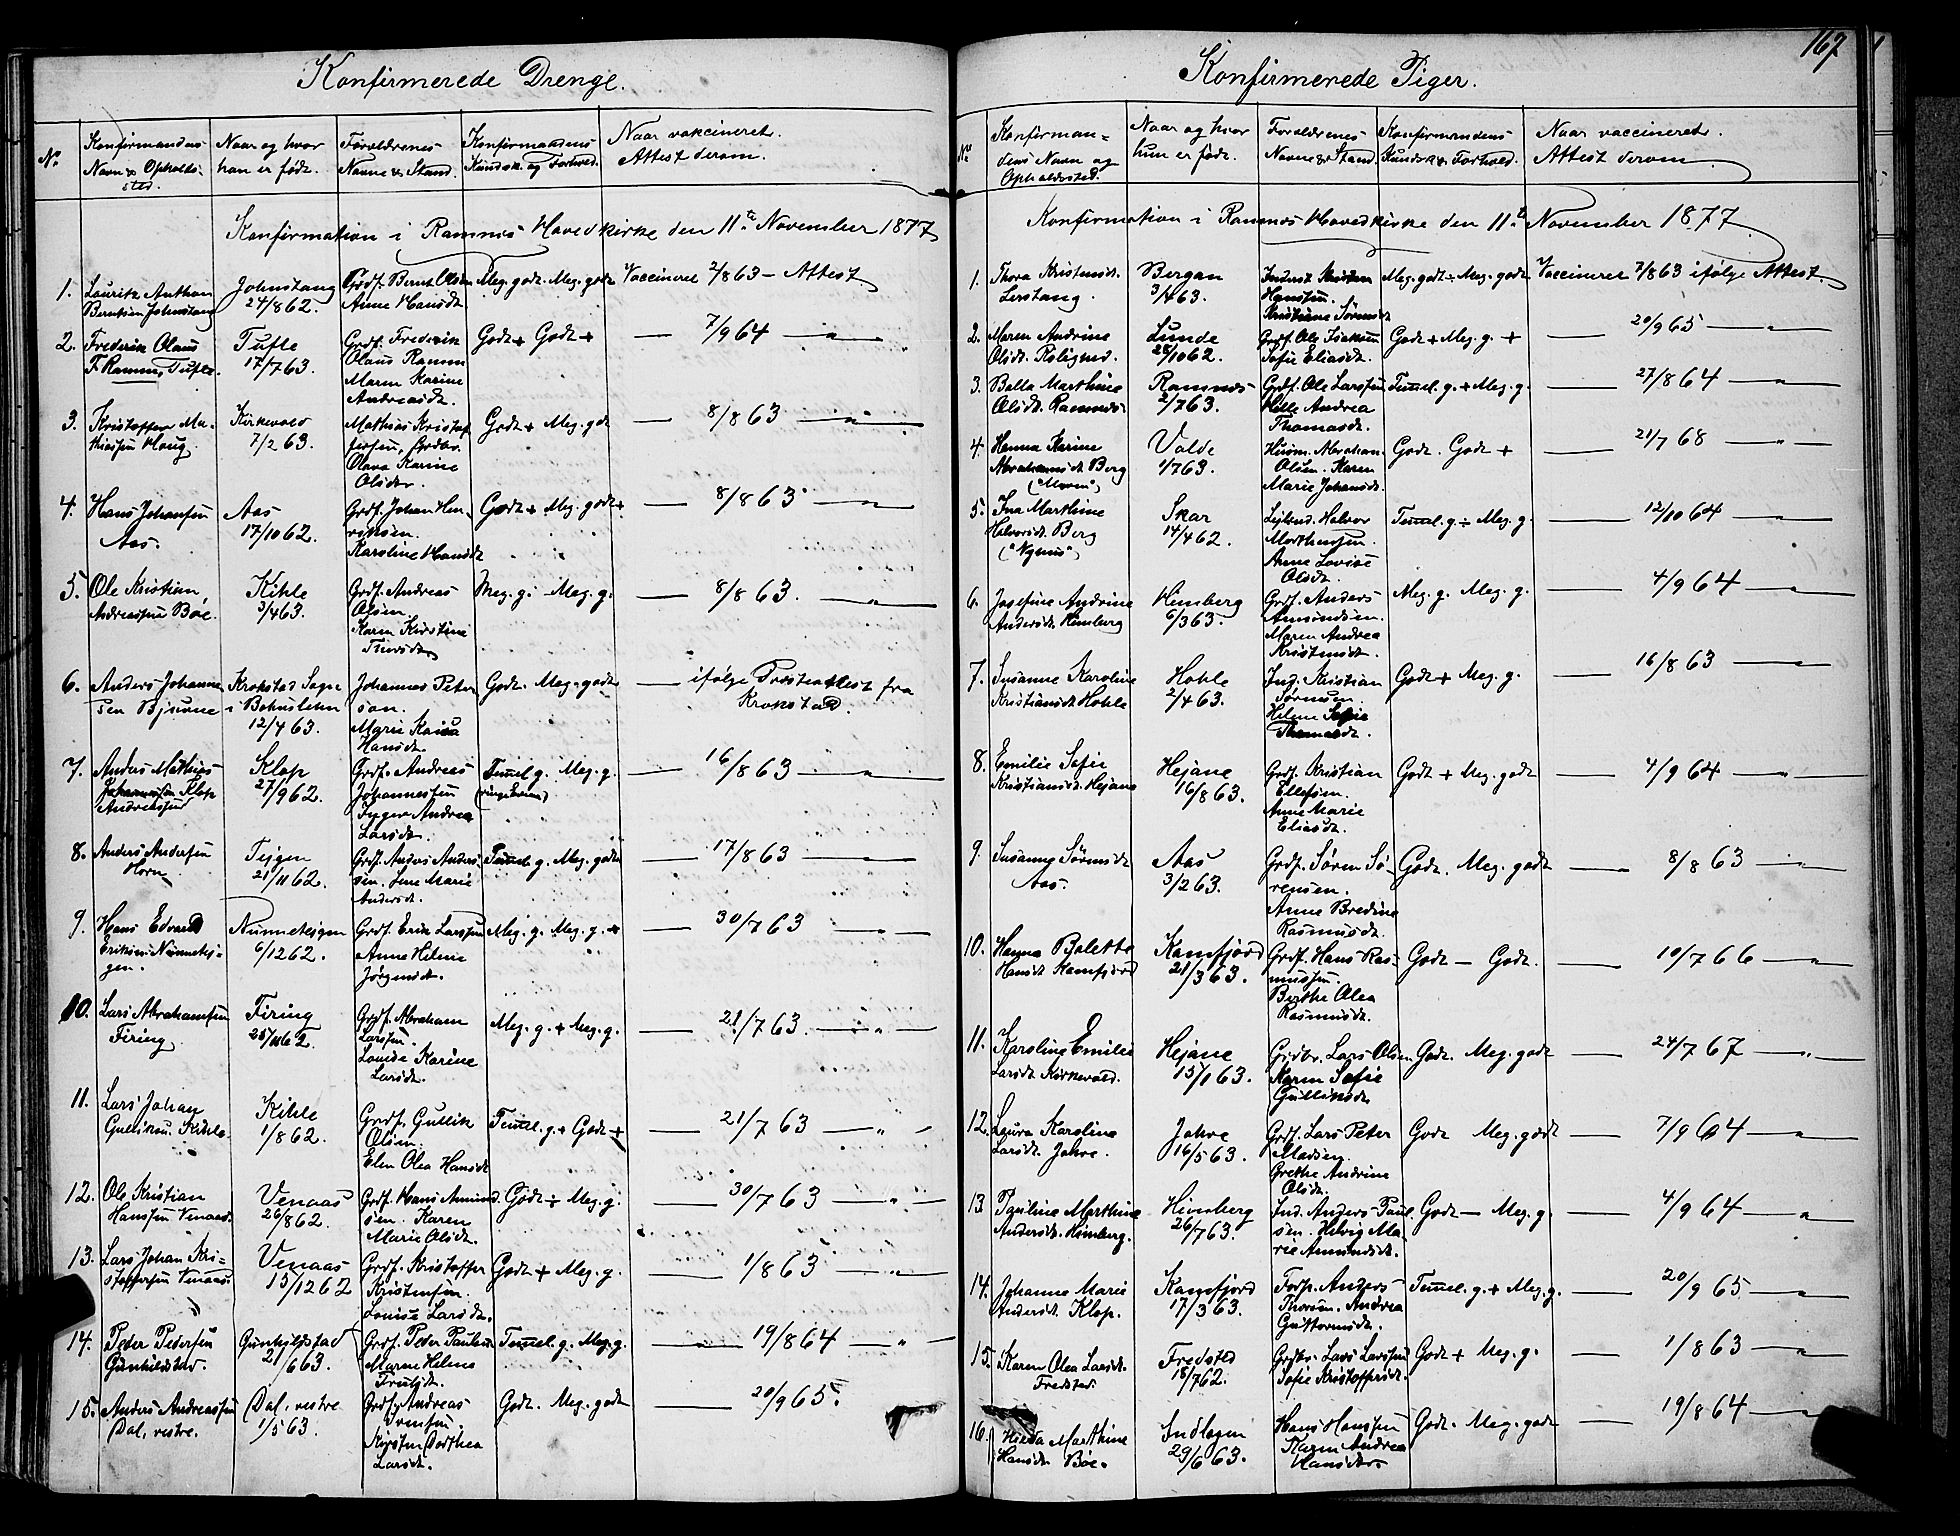 167
Konfirmerede Drenge.
No.
Konfirmandens
Navn & Opholds-
sted.
Naar og hvor
han er født.
Forældrenes
Navne & Stand.
Konfirmandens
Kundsk. og Forhold.
Naar vakcineret.
Attest derom.
Konfirmation i Ramnes Hovedkirke den 11te November 1877
1.
Lauritz Anthon
Berntsen Johnstang
Johnstang
24/8 62.
Grdf. Bernt Olsen
Anne Hansdt.
Meg. godt. Meg. godt
Vaccineret 2/8 63 - Attest
2.
Frederik Olaus
F. Ramm, Tufte.
Tufte
17/7 63.
Grdf. Frederik
Olaus Ramm
Maren Karine
Andreasdt.
Godt + Godt +
— 7/9 64 — „
3.
Kristoffer Ma-
thiesen Haug.
Kirkevold
7/2 63.
Mathias Kristof-
fersen, Grdbr.
Olava Karine
Olsdtr.
Godt + Meg. godt
— 8/8 63 — „
4.
Hans Johansen
Aas.
Aas
17/10 62.
Grdf. Johan Hen-
riksen.
Karoline Hansdt.
Godt + Meg. godt +
— 8/8 63 — „
5.
Ole Kristian
Andreassen Bøe.
Kihle
3/4 63.
Grdf. Andreas
Olsen.
Karen Kirstine
Meg. g. Meg. g.
— 8/8 63. — „
6.
Anders Johanne-
sen
Krokstad Sogn
i Bohuslehn
12/4 63.
Johannes Peter-
son.
Marie
Hansdt.
Godt. Meg. godt
— ifølge Præsteattest fra
Krokstad.
7.
Anders Mathias
Johannesen Klop
Andreassen
Klop
27/9 62.
Grdf. Andreas
Johannessen
Inger Andrea
Larsdt.
Temel. g. Meg. g.
— 16/8 63 — „
8.
Anders Andersen
Horn
Tejgen
21/11 62.
Grdf. Anders Anders-
sen. Lene Marie
Andersdt.
Temel. g. Meg. godt
— 17/8 63 — „
9.
Hans Edvard
Eriksen Nunnetej-
gen.
Nunnetejgen
6/12 62.
Grdf. Erik Larssen
Anne Helene
Jørgensdt.
Meg. g. Meg. g. +
— 30/7 63 — „
10.
Lars Abrahamsen
Firing
Firing
25/11 62.
Grdf. Abraham
Larssen.
Louise Karine
Larsdt.
Meg. g. + Meg. g.
— 21/7 63. — „
11.
Lars Johan
Gulliksen Kihle.
Kihle
1/8 62.
Grdf. Gullik
Olsen.
Elen Olea Hansdt.
Temel. g. + Godt +
— 21/7 63 — „
12.
Ole Kristian
Hanssen Venaas.
Venaas
26/8 62.
Grdf. Hans Amund-
sen. Karen
Marie Olsdt.
Godt ÷ Meg. g.
— 30/7 63 — „
13.
Lars Johan Kri-
stoffersen Venaas.
Venaas
15/12 62
Grdf. Kristoffer
Kristensen.
Louise Larsdt.
Godt + Meg. g.
— 1/8 63 — „
14.
Peder Pedersen
Gunhildstad.
Gunhildstad
21/6 63.
Grdf. Peder Paulsen
Maren Helene
Temel. g. Meg. g.
— 19/8 64 — „
15.
Anders Andreassen
Dal, vestre.
Dal, vestre
1/5 63.
Grdf. Andreas
Iversen.
Kirsten Dorthea
Larsdt.
Godt. Meg. godt
— 20/9 65.
Konfirmerede Piger.
No.
Konfirman-
dens Navn og
Opholdssted.
Naar og hvor
hun er født.
Forældrenes
Navne & Stand
Konfirmandens
Kundsk. & Forhold.
Naar vaccineret.
Attest derom
Konfirmation i Ramnes Hovedkirke den 11te November 1877
1.
Thora Kristensdt.
Lerstang.
Bergan
3/4 63.
Inderst Kristen
Hanssen.
Kristiane Sørensdt.
Meg. godt ÷ Meg. godt
Vaccineret 7/8 63 ifølge Attest
2.
Maren Andrine
Olsdt. Rolighed.
Lunde
28/10 62.
Grdf. Ole Isaksen
Sofie Eliasdt.
Godt + Meg. g. +
— 20/9 65 — „
3.
Bolla Marthine
Olsdt. Ramnes
Ramnes
2/7 63.
Grdf. Ole Larssen
Helle Andrea
Thomasdt.
Temel. g. + Meg. g.
— 27/8 64 — „
4.
Hanna Karine
Abrahamsdt. Berg
Valde
1/7 63.
Husm. Abraham
Olsen. Karen
Marie Johansdt.
Godt. Godt +
— 21/7 68 — „
5.
Ina Marthine
Halvorsdt. Berg
Skar
14/4 62.
Lejlænd. Halvor
Mathissen.
Anne Lovise
Olsdt.
Temel. g. ÷ Meg. g.
— 12/10 64 — „
6.
Josefine Andrine
Andersdt. Himberg
Himberg
6/3 63.
Grdf. Anders
Amundsen.
Maren Andrea
Kristensdt.
Meg. g. Meg. g.
— 4/9 64 — „
7.
Susanne Karoline
Kristiansdt. Hohle
Hohle
2/4 63.
Ind. Kristian
Sørensen.
Helene Sofie
Thomasdt.
Godt + Meg. g.
— 16/8 63 — „
8.
Emilie Sofie
Kristiansdt. Hejane
Hejane
16/8 63.
Grdf. Kristian
Ellefsen.
Anne Marie
Eliasdt.
Godt + Meg. godt
— 4/9 64 — „
9.
Susanne Sørensdt.
Aas.
Aas
3/2 63.
Grdf. Søren Sø-
rensen.
Anne Bredine
Rasmusdt.
Godt. Meg. godt
— 8/8 63 — „
10.
Hanna Bolette
Hansdt. Kamfjord
Kamfjord
21/3 63.
Grdf. Hans Ras-
mussen.
Berthe Olea
Rasmusdt.
Godt — Godt.
— 10/7 66 — „
11.
Karoline Emilie
Larsdt. Kirkevold.
Hejane
15/1 63.
Grdbr. Lars Olsen
Karen Sofie
Gulliksdt.
Godt. Meg. godt
— 24/7 67 — „
12.
Laura Karoline
Larsdt. Jahre.
Jahre
16/5 63.
Grdf. Lars Peter
Madsen.
Grethe Andrine
Olsdt.
Godt Meg. godt
— 7/9 64 — „
13.
Pauline Marthine
Andersdt. Himberg.
Himberg
26/7 63.
Ind. Anders Paul-
sen. Helvig Ma-
rie Amundsdt.
Godt — Meg. g.
— 4/9 64 — „
14.
Johanne Marie
Andersdt. Klop.
Kamfjord
17/3 63.
Forp. Anders
Thorsen. Andrea
Guttormsdt.
Temel. g. + Meg. g.
— 20/9 65 — „
15.
Karen Olea Larsdt.
Fredsted.
Fredsted
18/7 62.
Grdbr. Lars Larssen
Sofie Kristoffersdt.
Godt + Meg. g.
— 1/8 63 — „
16.
Hilda Marthine
Hansdt. Bøe.
Indlagen
29/6 63.
Hans Hanssen
Karen Andrea
Hansdtr.
Godt. Meg. godt
— 19/8 64 — „